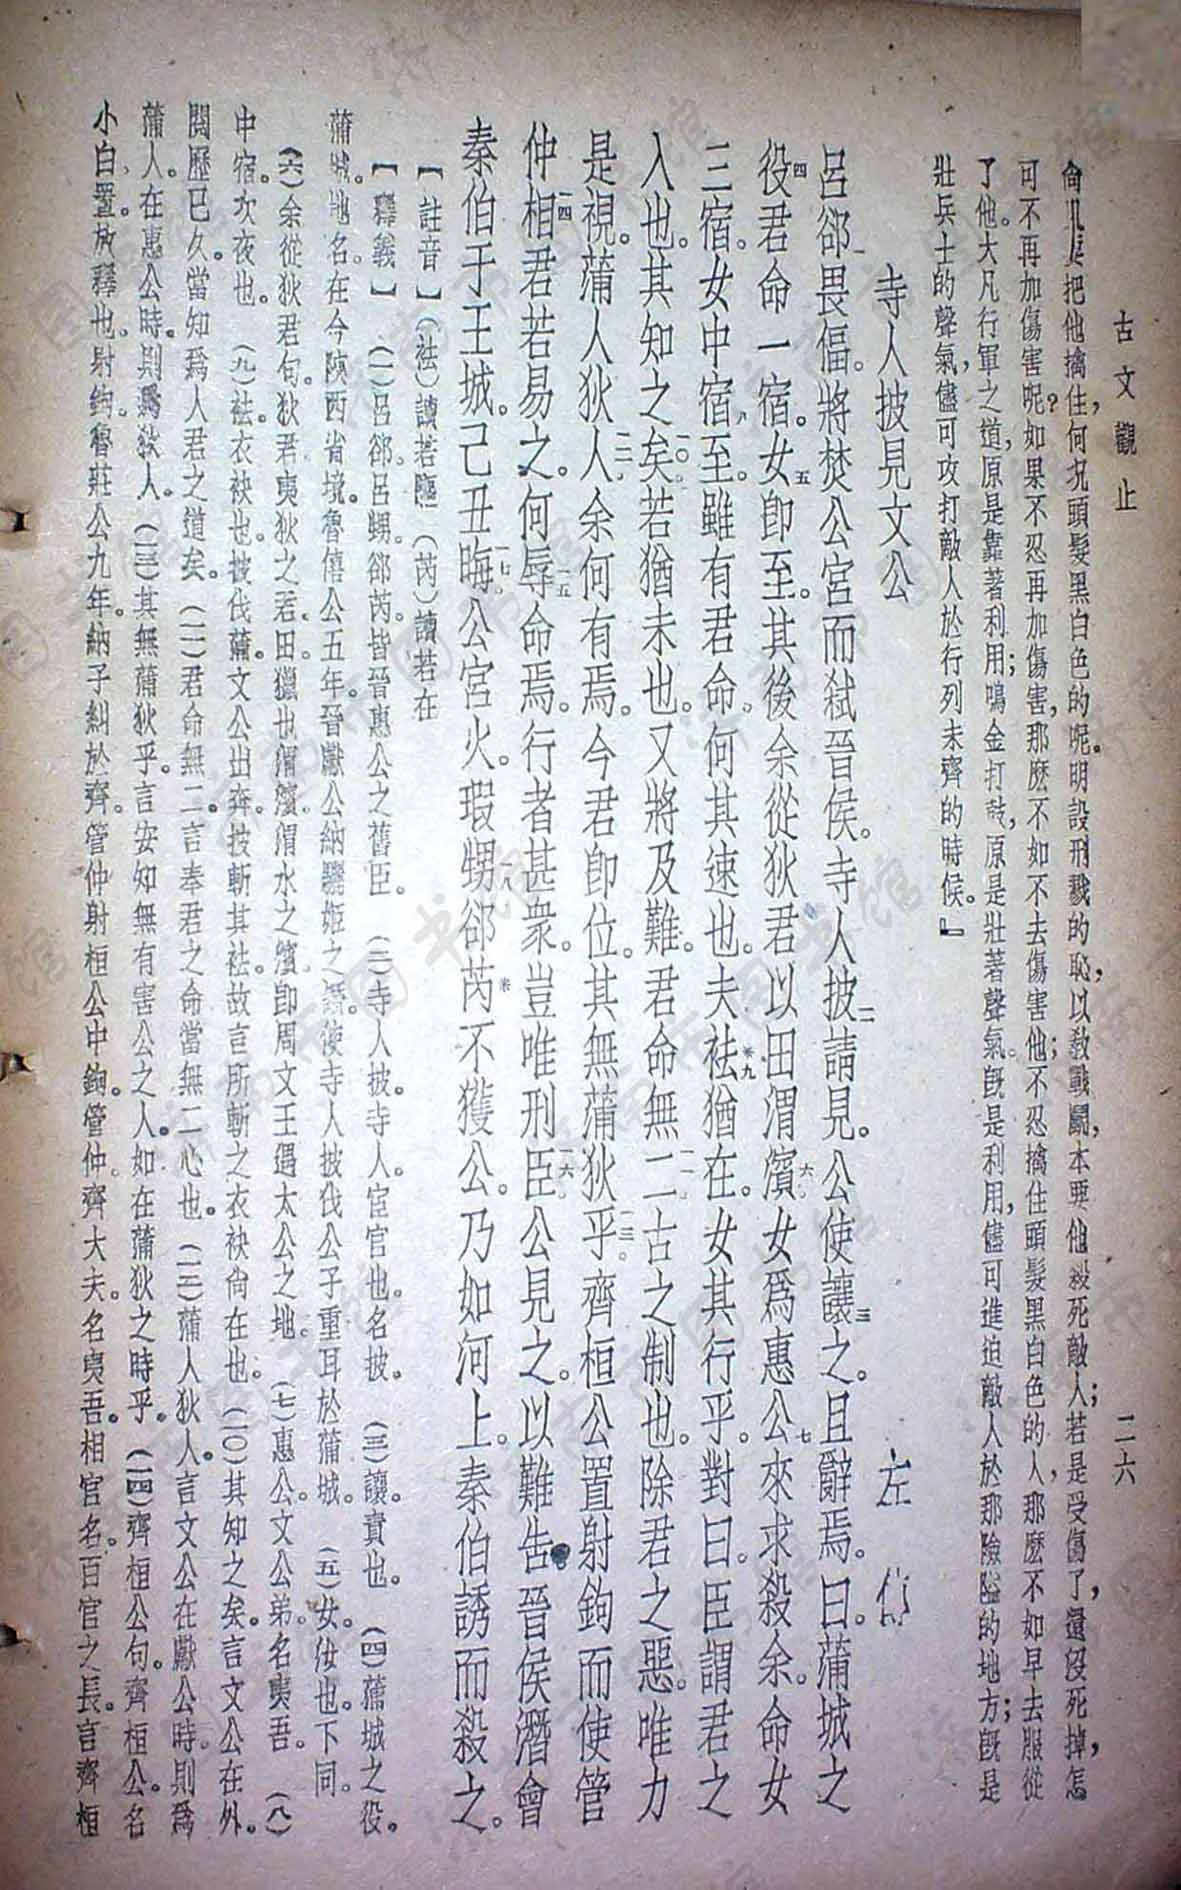 古文觀止
二六
尙且要把他擒住，何況頭髮黑白色的呢。明設刑戮的恥，以教戰鬭，本要他殺死敵人；若是受傷了，還沒死掉，怎
可不再加傷害呢？如果不忍再加傷害，那麽不如不去傷害他；不忍擒住頭髮黑白色的人，那麽不如早去服從
了他。大凡行軍之道，原是靠著利用；鳴金打鼓，原是壯著聲氣。旣是利用，儘可進迫敵人於那險隘的地方；旣是
壯兵士的聲氣，儘可攻打敵人於行列未齊的時候。』
寺人披見文公
左傳
呂郤畏偪。將焚公宮而弑晉侯。寺人披二請見。公使讓三之。且辭焉。曰。蒲城之
役四君命一宿。女五卽至。其後余從狄君以田渭濱六。女爲惠公七來求殺余。命女
三宿。女中宿八至。雖有君命。何其速也。夫袪*九猶在。女其行乎。對曰。臣謂君之
入也。其知之矣一〇。若猶未也。又將及難。君命無二一一。古之制也。除君之惡。唯力
是視。蒲人狄人一二。余何有焉。今君卽位。其無蒲狄乎一三。齊桓公置射鉤而使管
仲相一四君若易之。何辱一五命焉。行者甚衆。豈唯刑臣一六。公見之。以難告。晉侯潛會
秦伯于王城。己丑晦一七。公宮火。瑕甥一八郤芮*不獲公。乃如河上。秦伯誘而殺之。
【註音】（袪）讀若驅（芮）讀若在
【釋義】（一）呂郤。呂甥郤芮。皆晉惠公之舊臣。（二）寺人披。寺人。宦官也。名披。（三）讓。責也。（四）蒲城之役。
蒲城。地名。在今陝西省境。魯僖公五年。晉獻公納驪姬之譖。使寺人披伐公子重耳於蒲城。（五）女。汝也。下同。
（六）余從狄君句。狄君夷狄之君。田。獵也渭濱。渭水之濱。卽周文王遇太公之地。（七）惠公。文公弟。名夷吾。（八）
中宿。次夜也。（九）袪。衣袂也。披伐蒲。文公出奔。披斬其袪。故言所斬之衣袂尙在也。（一〇）其知之矣。言文公在外。
閱歷已久。當知爲人君之道矣。（一一）君命無二。言奉君之命當無二心也。（一二）蒲人狄人。言文公在獻公時。則爲
蒲人。在惠公時。則爲狄人。（一三）其無蒲狄乎。言安知無有害公之人。如在蒲狄之時乎。（一四）齊桓公句。齊桓公。名
小白。置。放釋也。射鉤。魯莊公九年。納子糾於齊。管仲射桓公中鉤。管仲。齊大夫。名夷吾。相官名。百官之長。言齊桓